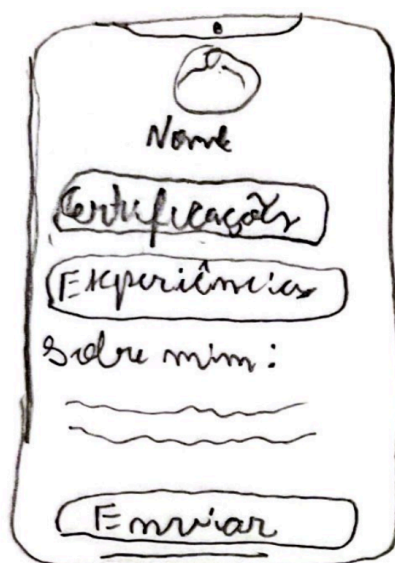 Nome
Certificações
Experiências
Sobre mim:
Enviar